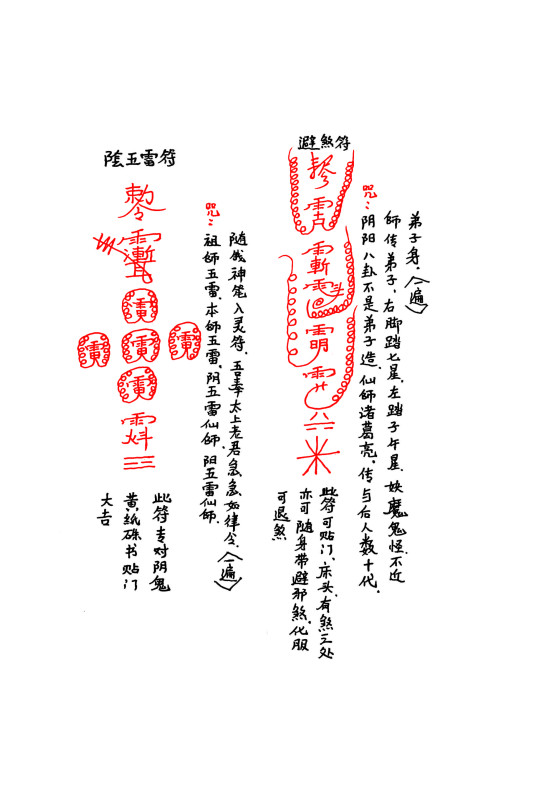 避煞符
咒:
阴阳八卦不是弟子造.仙師诸葛亮.传与后人数十代.
師传弟子,右脚踏七星.左踏子午星.妖魔鬼怪不近
弟子身.〈一遍〉
此符可贴门、床头、有煞之处
亦可随身带避邪煞.化服
可退煞
陰五雷符
敕令
咒:
祖師五雷.本師五雷.阴五雷仙師.阳五雷仙師.
随俄神笔入灵符.吾奉太上老君急急如律令.〈一遍〉
此符专对阴鬼
黄纸硃书贴门
大吉